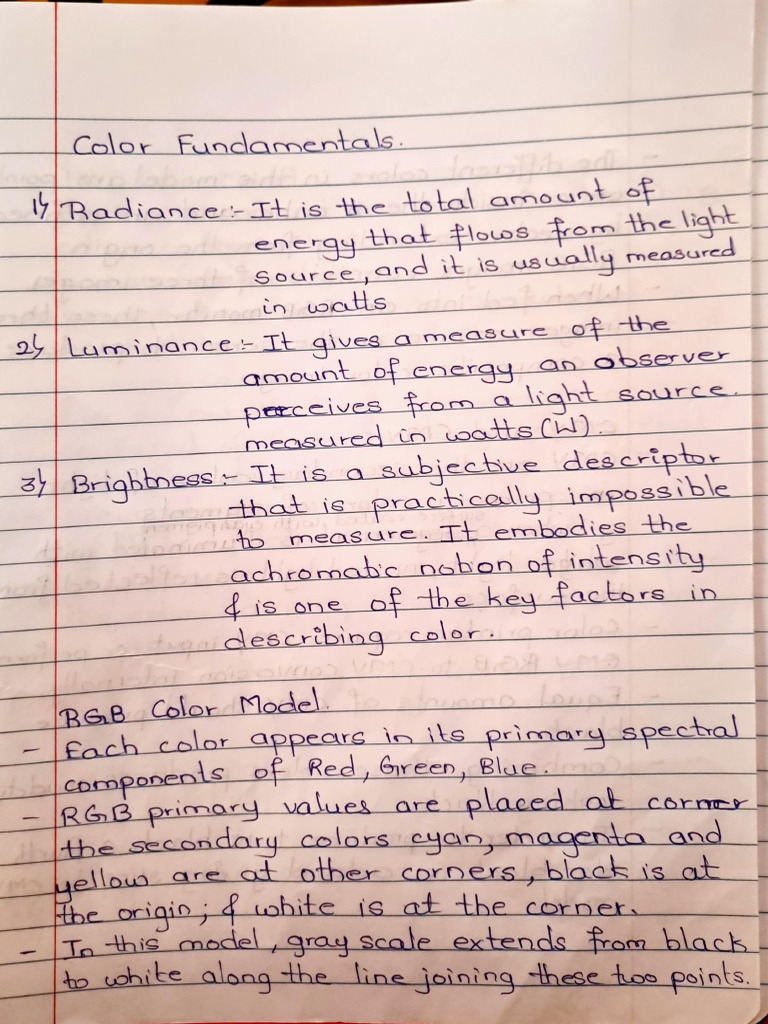 Color Fundamentals.
1) Radiance :- It is the total amount of
energy that flows from the light
source, and it is usually measured
in watts
2) Luminance :- It gives a measure of the
amount of energy an observer
perceives from a light source.
measured in watts (W).
3) Brightness :- It is a subjective descriptor
that is practically impossible
to measure. It embodies the
achromatic notion of intensity
& is one of the key factors in
describing color.
RGB Color Model.
- Each color appears in its primary spectral
components of Red, Green, Blue.
- RGB primary values are placed at corner
the secondary colors cyan, magenta and
yellow are at other corners, black is at
the origin; & white is at the corner.
- In this model, gray scale extends from black
to white along the line joining these two points.